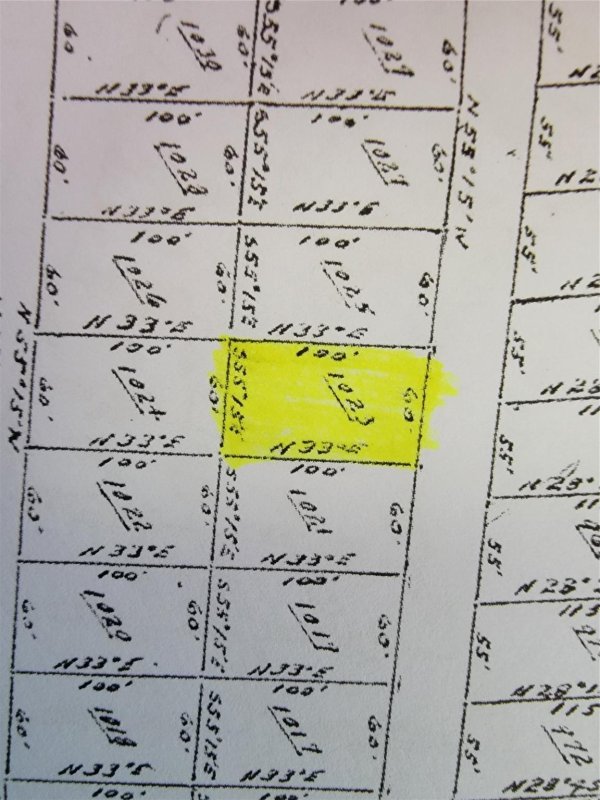 60'
1030
60'
S55°15'E
1029
60'
55'
N33°E
N33°E
N2
100'
100'
60'
1028
60'
S55°15'E
1027
60'
N55°15'W
55'
N33°E
N33°E
N2
100'
100'
60'
1026
60'
S55°15'E
1025
60'
55'
N33°E
N33°E
N2
N55°15'W
100'
100'
60'
1024
60'
S55°15'E
1023
60'
55'
N33°E
N33°E
N28
100'
100'
60'
1022
60'
S55°15'E
1021
60'
55'
N33°E
N33°E
N28°
100'
100'
60'
1020
60'
S55°15'E
1019
60'
55'
N33°E
N33°E
N28°
115
100'
100'
60'
1018
60'
S55°15'E
1017
60'
55'
N33°E
N33°E
N28°
115
55'
972
100'
100'
N28°45